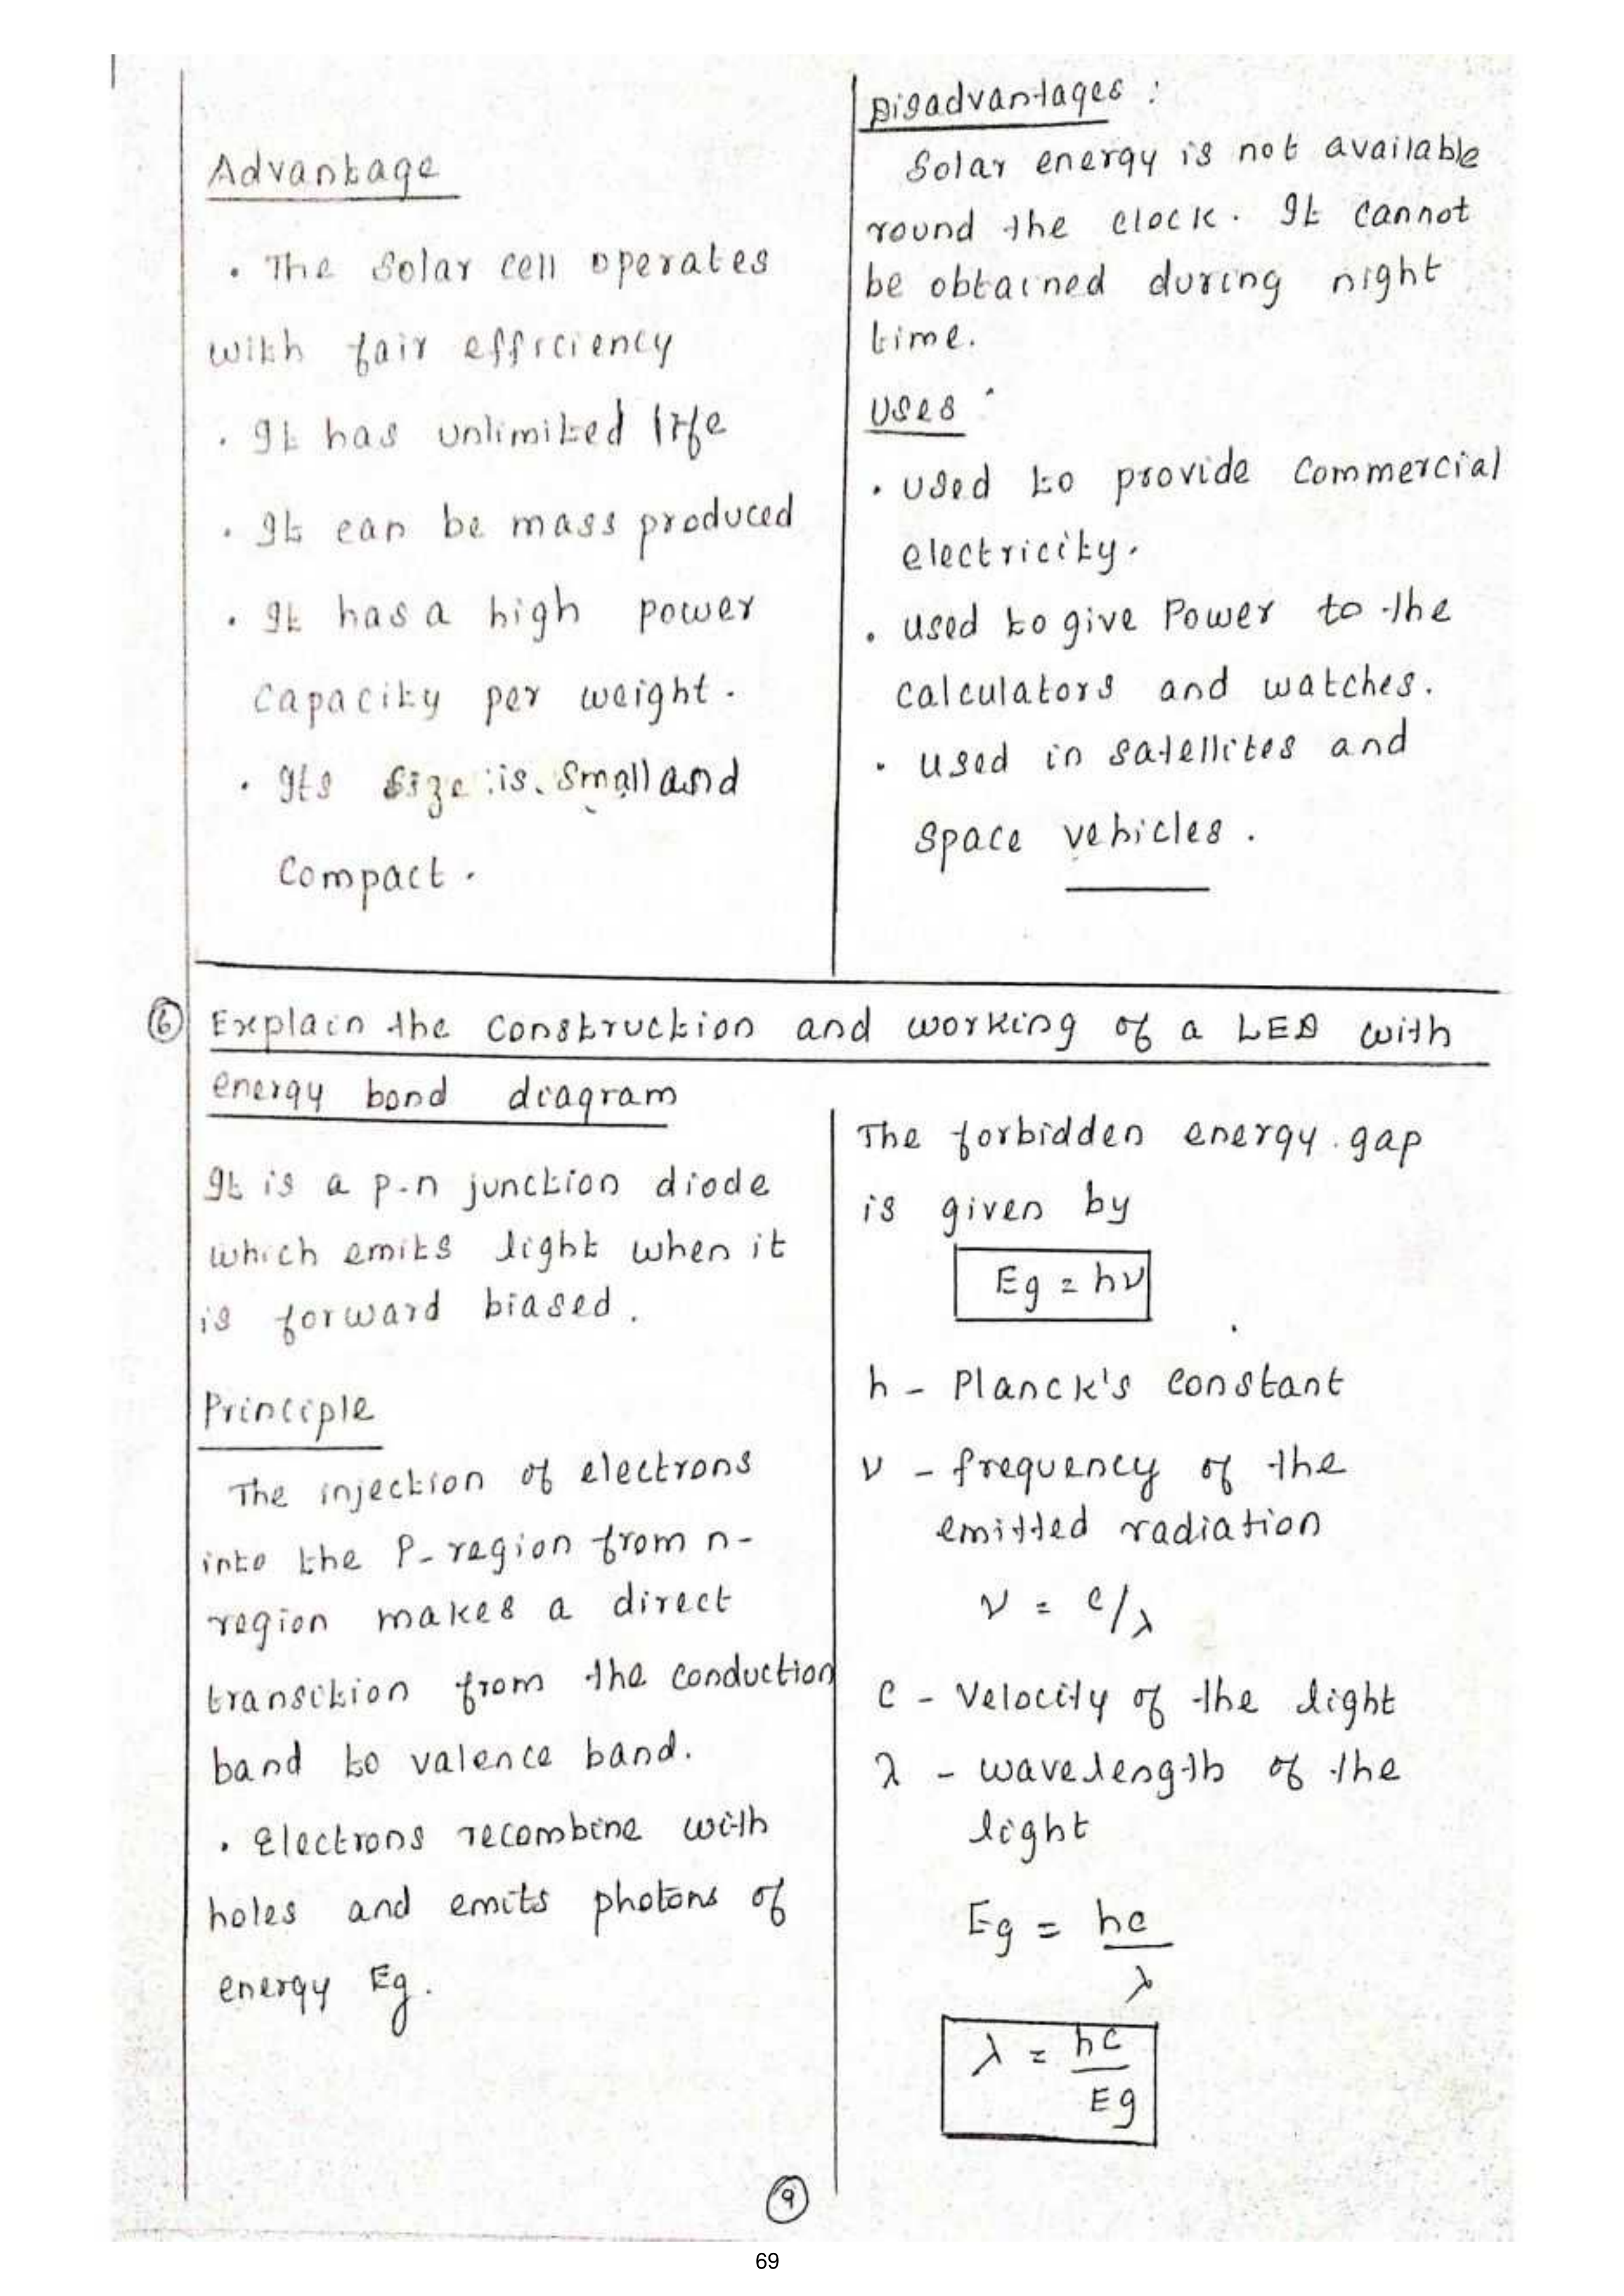 Advantage
• The Solar cell operates
with fair efficiency
• It has unlimited life
• It can be mass produced
• It has a high power
capacity per weight.
• Its size is small and
Compact.
Disadvantages :
Solar energy is not available
round the clock. It cannot
be obtained during night
time.
Uses :
• used to provide commercial
electricity.
• used to give Power to the
calculators and watches.
• used in satellites and
space vehicles.
⑥ Explain the construction and working of a LED with
energy bond diagram
It is a p-n junction diode
which emits light when it
is forward biased.
Principle
The injection of electrons
into the P-region from n-
region makes a direct
transition from the conduction
band to valence band.
• Electrons recombine with
holes and emits photons of
energy Eg.
The forbidden energy gap
is given by
Eg = hν
h - Planck's constant
ν - frequency of the
emitted radiation
ν = c/λ
C - Velocity of the light
λ - wavelength of the
light
Eg = hc
λ
λ = hc
Eg
⑨
69